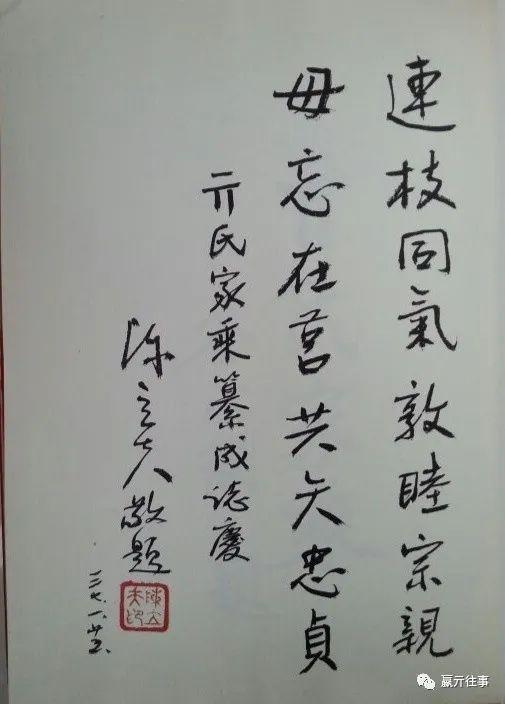 連枝同氣敦睦宗親
毋忘在莒共矢忠貞
亓氏家乘纂成誌慶
陳立夫敬題
陳立夫印
嬴亓往事